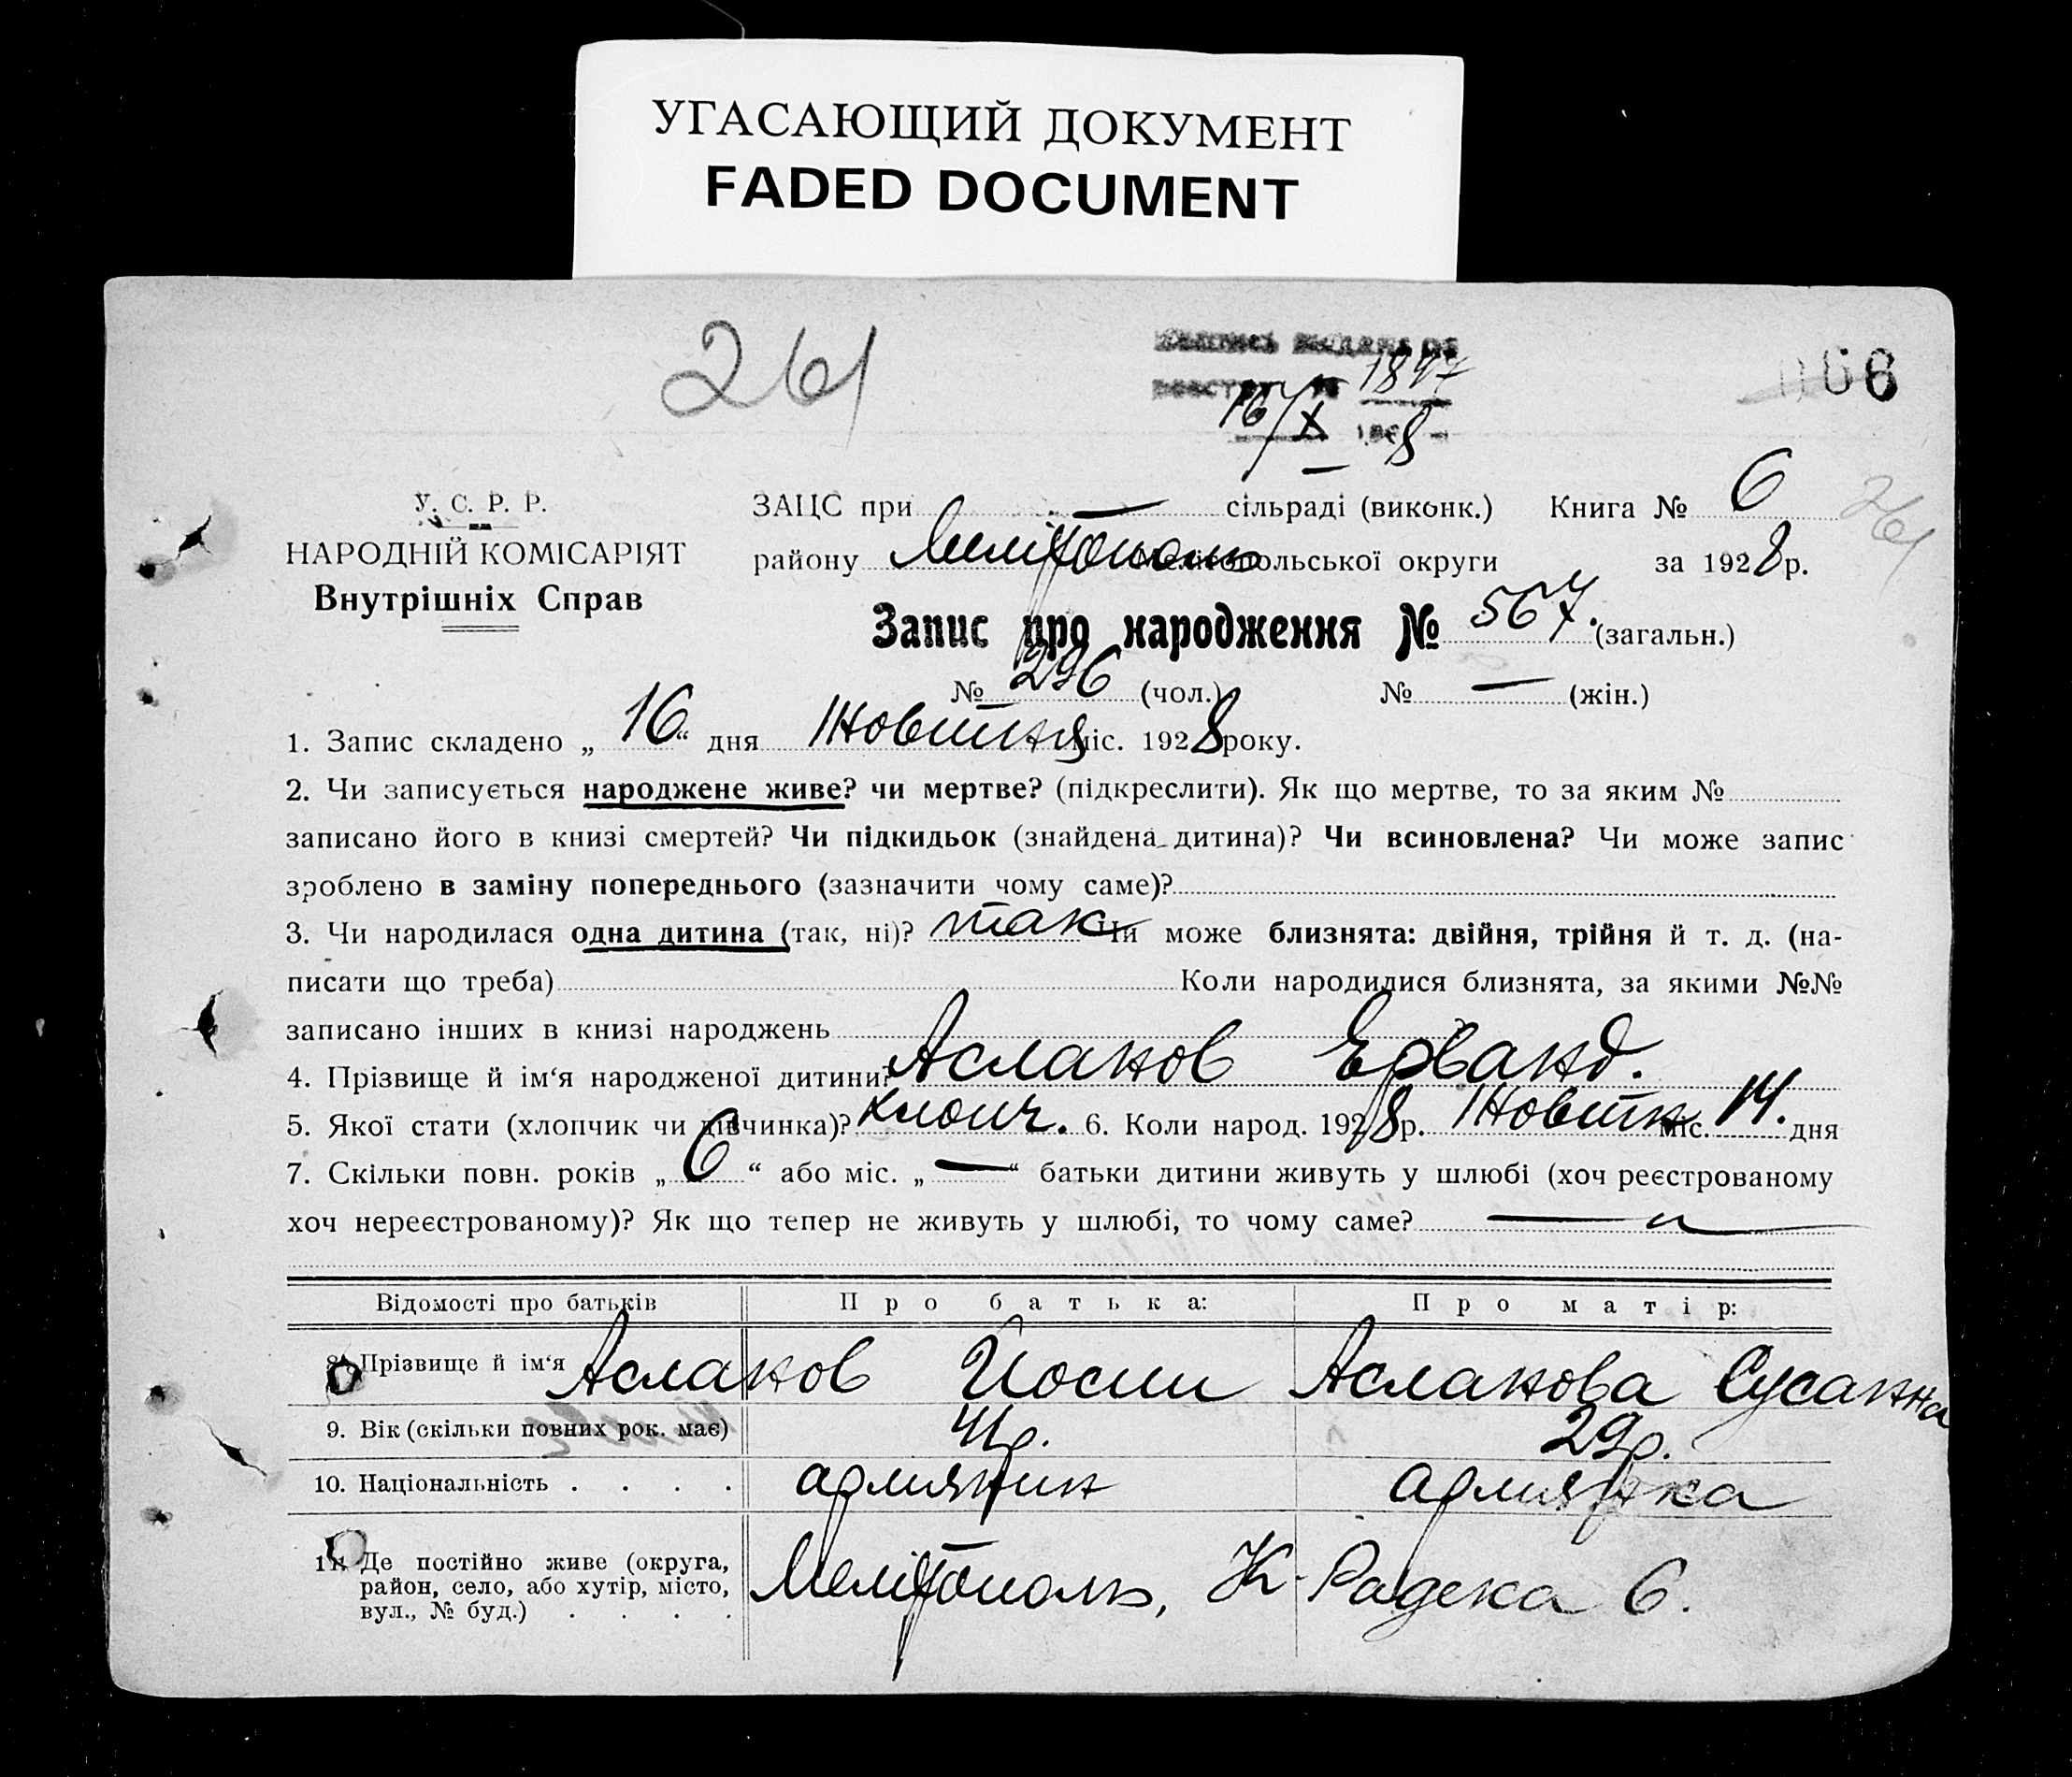 УГАСАЮЩИЙ ДОКУМЕНТ
FADED DOCUMENT
261
1897
16/X 8
6
У. С. Р. Р.
НАРОДНІЙ КОМІСАРІЯТ
Внутрішніх Справ
ЗАЦС при — сільраді (виконк.) Книга № 6
261
району Мелітополь Мелітопольської округи за 1928 р.
Запис про народження № 567. (загальн.)
№ 296 (чол.) № — (жін.)
1. Запис складено „16“ дня Жовтня міс. 1928 року.
2. Чи записується народжене живе? чи мертве? (підкреслити). Як що мертве, то за яким №
записано його в книзі смертей? Чи підкидьок (знайдена дитина)? Чи всиновлена? Чи може запис
зроблено в заміну попереднього (зазначити чому саме)?
3. Чи народилася одна дитина (так, ні)? так Чи може близнята: двійня, трійня й т. д. (на-
писати що треба) Коли народилися близнята, за якими №№
записано інших в книзі народжень
4. Прізвище й ім‘я народженої дитини? Асланов Ерванд.
5. Якої стати (хлопчик чи дівчинка)? хлопч. 6. Коли народ. 1928 р. Жовтн. міс. 14. дня
7. Скільки повн. років „6“ або міс. „—“ батьки дитини живуть у шлюбі (хоч реєстрованому
хоч нереєстрованому)? Як що тепер не живуть у шлюбі, то чому саме?
Відомості про батьків Про батька: Про матір:
8. Прізвище й ім‘я Асланов Йосип Асланова Сусанна
9. Вік (скільки повних рок. має) 41 р. 29 р.
10. Національність . . . . армянин армянка
11. Де постійно живе (округа,
район, село, або хутір, місто,
вул., № буд.) . . . . Мелітополь, К. Радека 6.